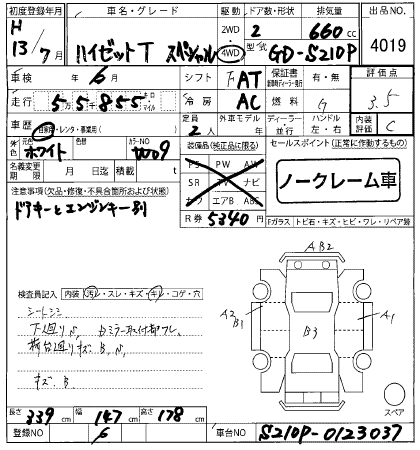 初度登録年月 車名・グレード 駆動 ドア数・形状 排気量 出品NO
H 13/7月 ハイゼットT スペシャル 2WD 4WD 2 660cc 4019
型式 GD-S210P
車検 年6月 シフト AT 保証書 有・無 評価点
走行 55855 km マイル 冷房 AC 燃料 G 3.5
車歴 自家用・レンタ・事業用( ) 定員 2人 外車モデル 年 ディーラー 並行 ハンドル 左・右 内装評価 C
外色 元色 ホワイト 色替 カラーNO W09 装備品(純正品に限る) セールスポイント(正常に作動するもの)
名義変更期限 月 日迄 積載 t
PS PW AW
SR TV ナビ
ナワ エアB ABS
ノークレーム車
注意事項(欠品・修復・不具合箇所およびその他) R券 5340円
Fガラス トビ石・キズ・ヒビ・ワレ・リペア跡
ドアキーとエンジンキー別
AB2
検査員記入 内装 汚レ・スレ・キズ・キレ・コゲ・穴
A2 B1 B3 A1
シートシミ
下廻りサ Dミラー取付部サフレ、
荷台廻りキズ、B、サ、
キズ、B
スペア
長さ 339cm 幅 147cm 高さ 178cm
登録NO 6 車台NO S210P-0123037